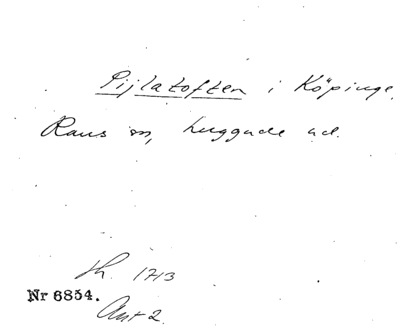 Pijlatoften i Köpinge,
Raus sn, huggade ut.
Lh. 1713
Nr 6854.
Ant 2.